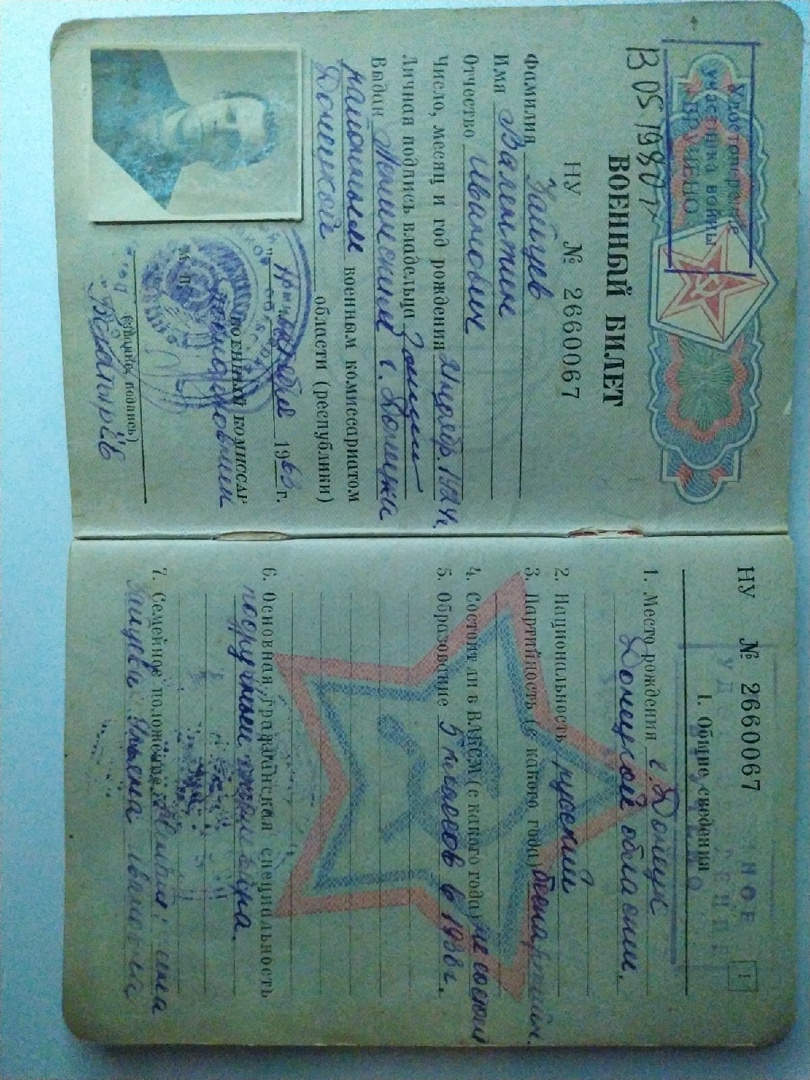 Удостоверение
участника войны
ВРУЧЕНО
13 05 1980 г
ВОЕННЫЙ БИЛЕТ
НУ № 2660067
Фамилия Зайцев
Имя Валентин
Отчество Иванович
Число, месяц и год рождения 1924г.
Личная подпись владельца
Выдан Ленинским г. Донецка
районным военным комиссариатом
Донецкой области (республики)
1963 г.
М. П.
ВОЕННЫЙ КОМИССАР
подполковник
(воинское звание, подпись)
НУ № 2660067
1
I. Общие сведения
1. Место рождения г. Донецк
Донецкой области.
2. Национальность русский
3. Партийность (с какого года) беспартийн.
4. Состоит ли в ВЛКСМ (с какого года) не состоит
5. Образование 5 классов в 1936г.
6. Основная гражданская специальность
подручный
7. Семейное положение жена
Зайцева